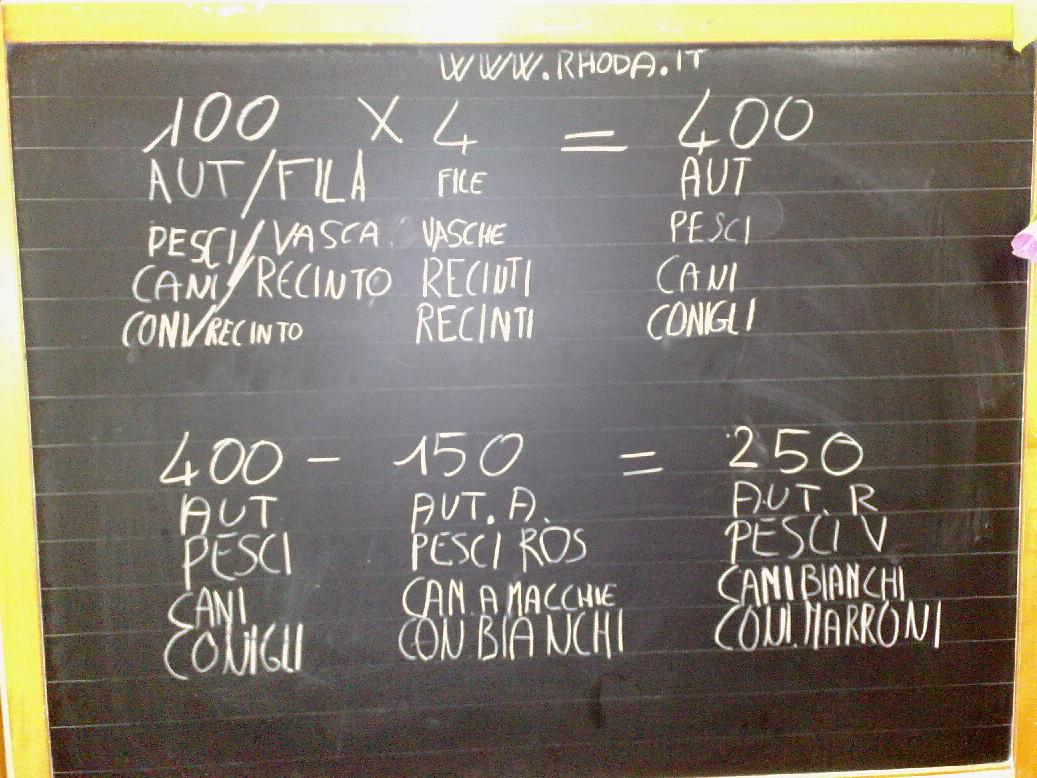 WWW.RHODA.IT
100 X 4 = 400
AUT/FILA FILE AUT
PESCI/VASCA VASCHE PESCI
CANI/RECINTO RECINTI CANI
CONI/RECINTO RECINTI CONIGLI
400 - 150 = 250
AUT AUT. A. AUT. R
PESCI PESCI ROS PESCI V
CANI CAN. A MACCHIE CANI BIANCHI
CONIGLI CON BIANCHI CONI. MARRONI